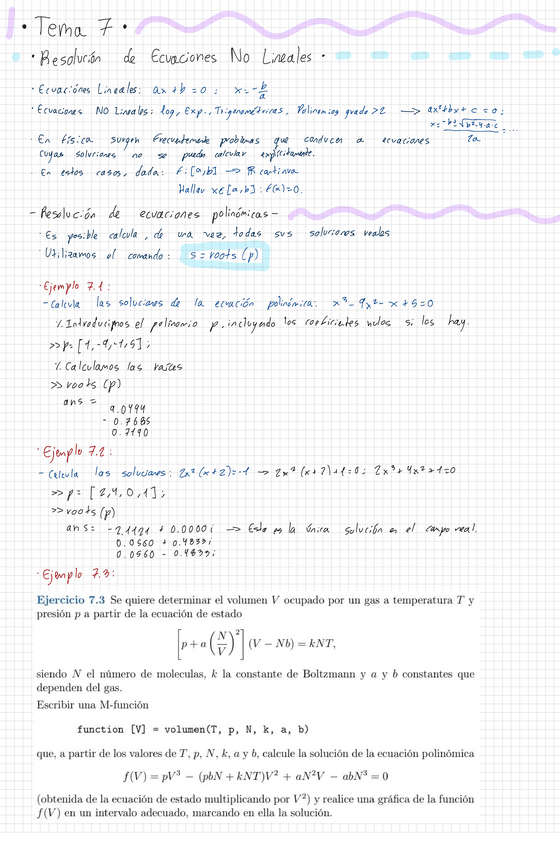 • Tema 7 •
• Resolución de Ecuaciones No Lineales •
• Ecuaciónes Lineales: ax + b = 0 ; x = -b/a
• Ecuaciones NO Lineales: log, Exp., Trigonométricas, Polinomios grado >2 → ax² + bx + c = 0 ;
x = -b ± √b²-4·a·c / 2a = ...
• En física surgen frecuentemente problemas que conducen a ecuaciones
cuyas soluciones no se pueden calcular explícitamente.
• En estos casos, dada: f: [a,b] → ℝ continua
Hallar x ∈ [a,b] : f(x) = 0.
- Resolución de ecuaciones polinómicas -
• Es posible calcula, de una vez, todas sus soluciones reales
• Utilizamos el comando: s = roots (p)
• Ejemplo 7.1:
- Calcula las soluciones de la ecuación polinómica: x³ - 9x² - x + 5 = 0
% Introducimos el polinomio p, incluyendo los coeficientes nulos si los hay.
>> p = [1, -9, -1, 5] ;
% Calculamos las raíces
>> roots (p)
ans =
9.0494
- 0.7685
0.7190
• Ejemplo 7.2:
- Calcula las soluciones: 2x² (x + 2) = -1 → 2x² (x + 2) + 1 = 0 ; 2x³ + 4x² + 1 = 0
>> p = [2, 4, 0, 1] ;
>> roots (p)
ans = - 2.1121 + 0.0000 i → Esta es la única solución en el campo real.
0.0560 + 0.4833 i
0.0560 - 0.4833 i
• Ejemplo 7.3:
Ejercicio 7.3 Se quiere determinar el volumen V ocupado por un gas a temperatura T y
presión p a partir de la ecuación de estado
[p + a (N/V)²] (V − Nb) = kNT,
siendo N el número de moleculas, k la constante de Boltzmann y a y b constantes que
dependen del gas.
Escribir una M-función
function [V] = volumen(T, p, N, k, a, b)
que, a partir de los valores de T, p, N, k, a y b, calcule la solución de la ecuación polinómica
f(V) = pV³ − (pbN + kNT)V² + aN²V − abN³ = 0
(obtenida de la ecuación de estado multiplicando por V²) y realice una gráfica de la función
f(V) en un intervalo adecuado, marcando en ella la solución.